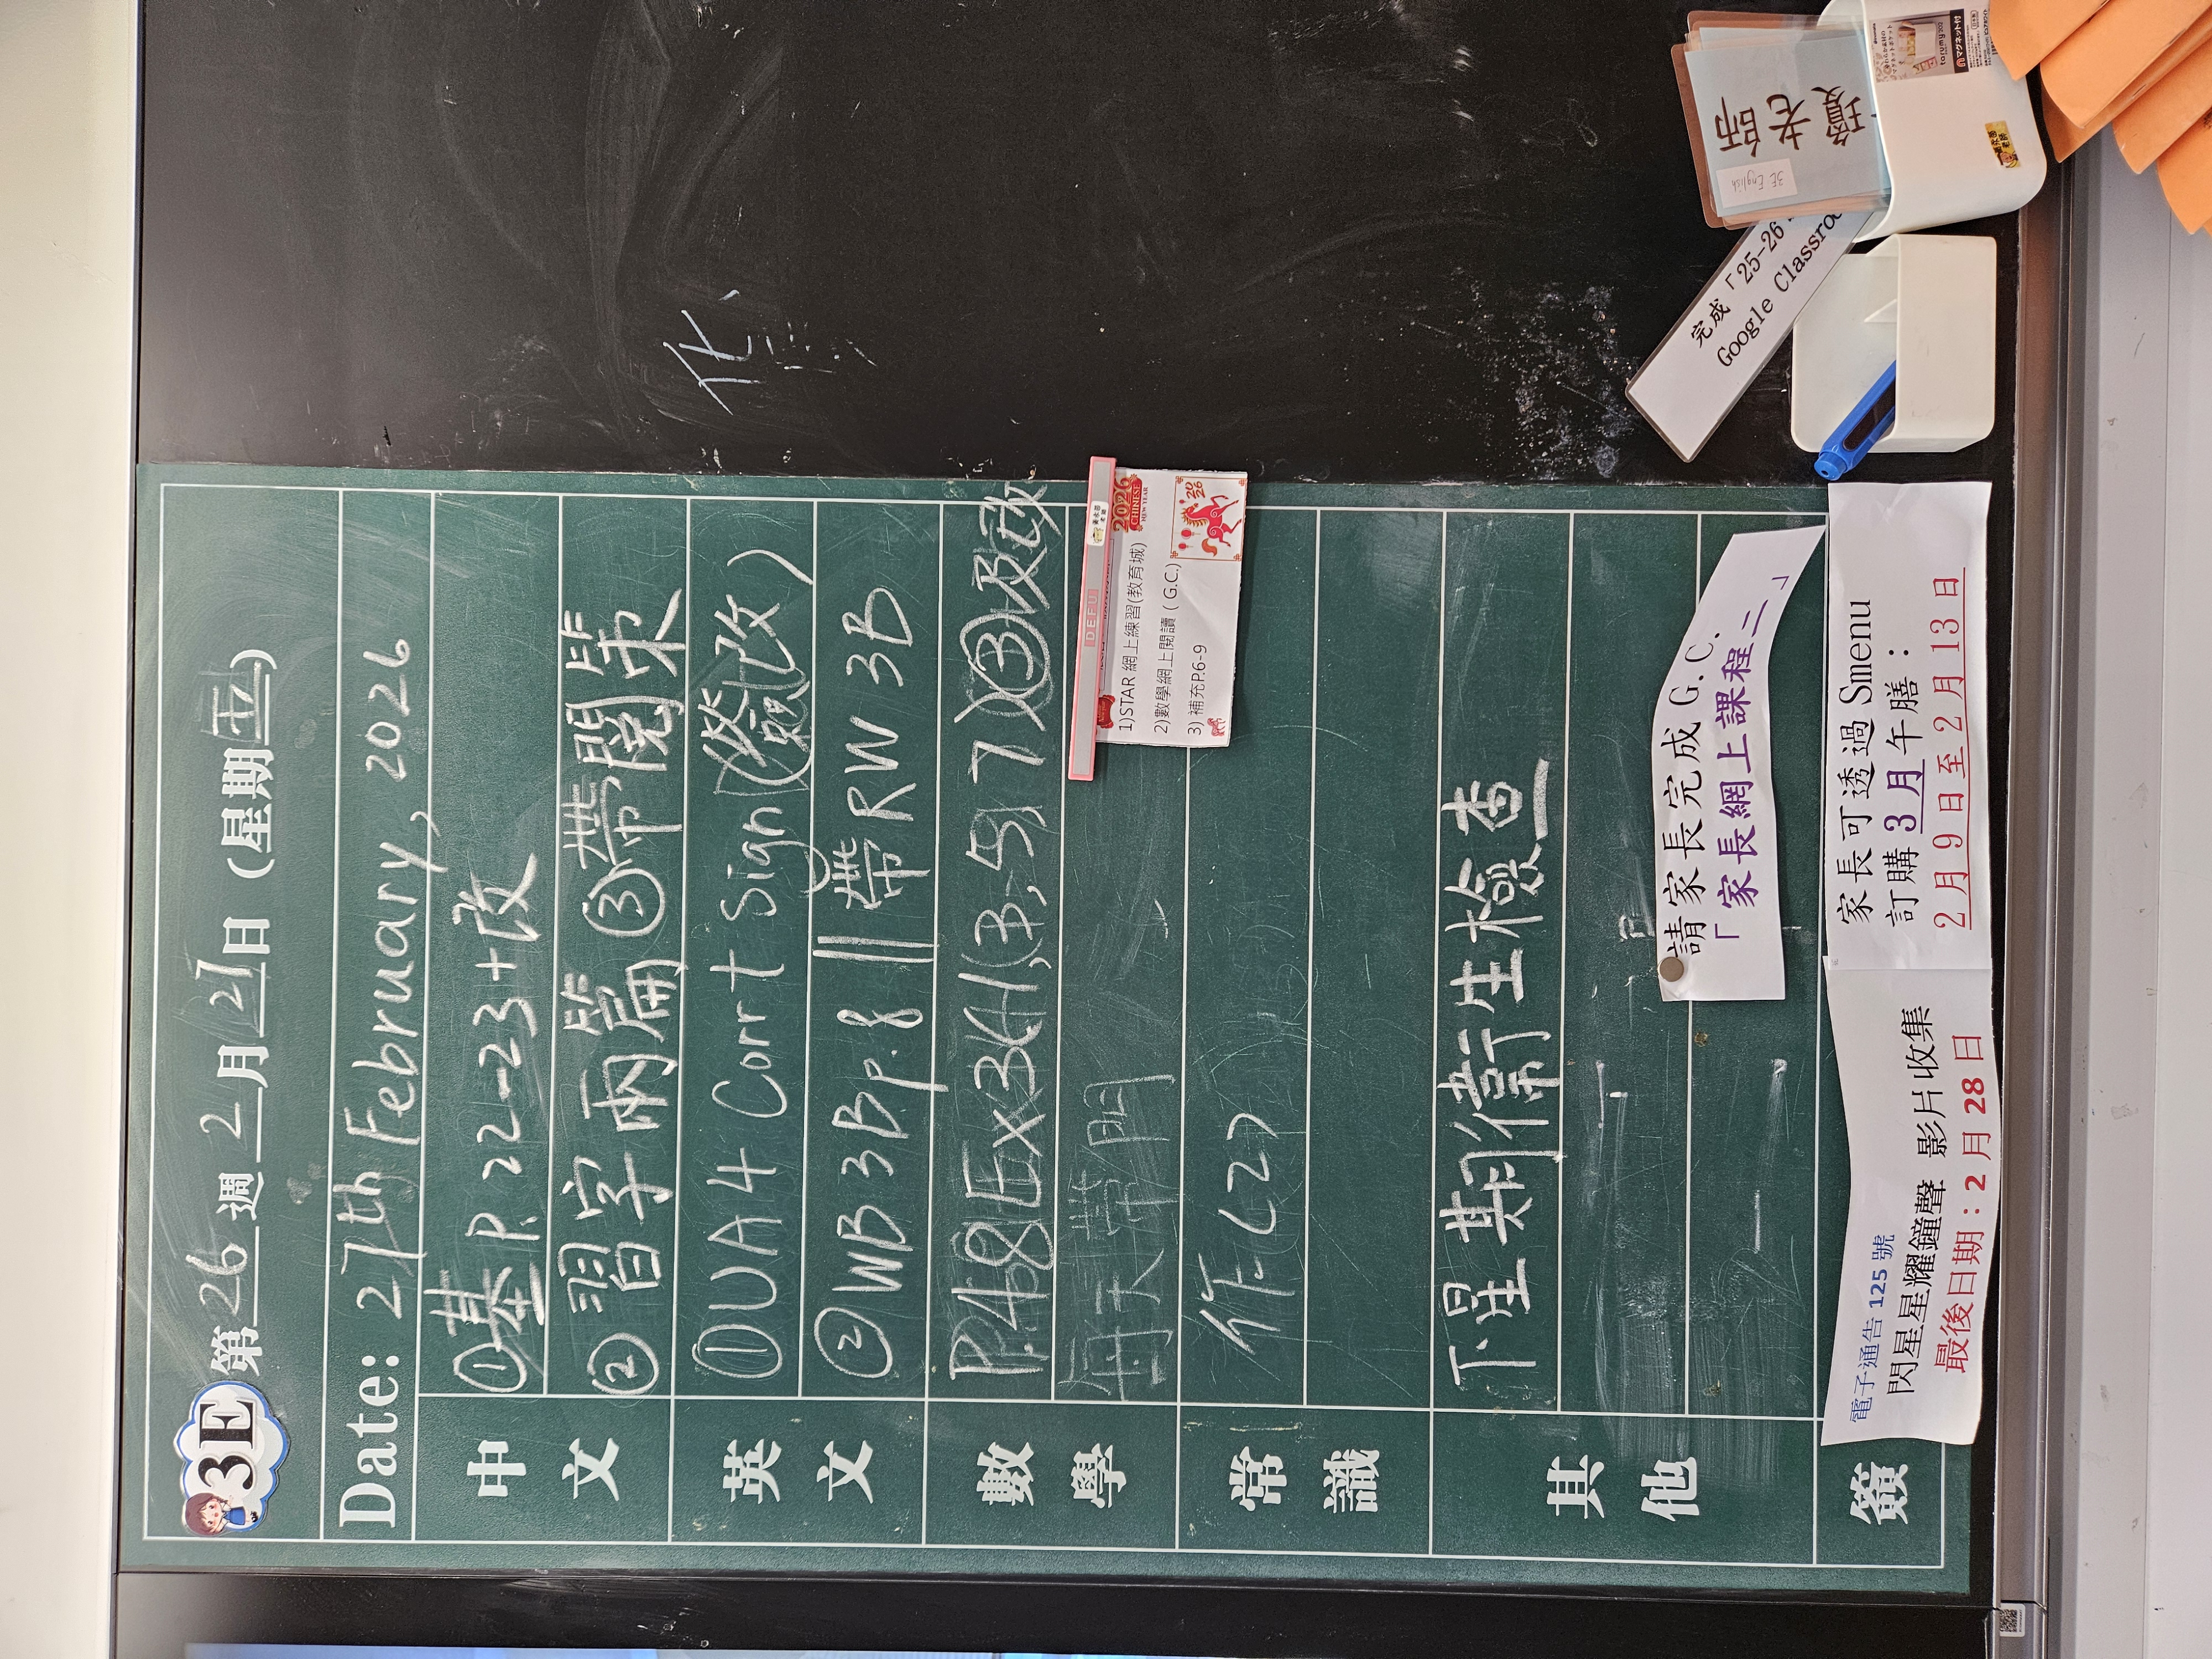 3E 第26週 2月27日 (星期五)
Date: 27th February, 2026
中文
①基P.22-23+改
②習字兩篇 ③帶閱策
英文
①UA4 Corrt Sign (簽改)
②WB 3B p.8 || 帶RW 3B
數學
P.48Ex3C(1,3,5,7)③
每天帶
常識
作C27
其他
下星期衛生檢查
簽
DEFU
2026
CHINESE
NEW YEAR
1)STAR 網上練習(教育城)
2)數學網上閱讀 ( G.C.)
3) 補充P.6-9
2026
請家長完成 G.C.
「 家長網上課程二 」
家長可透過 Smenu
訂購 3 月 午膳：
2 月 9 日 至 2 月 13 日
電子通告 125 號
閃星星耀鐘聲 影片收集
最後日期：2 月 28 日
化
完成「25-26
Google Classroo
老師
3E English
torumy
マグネット付